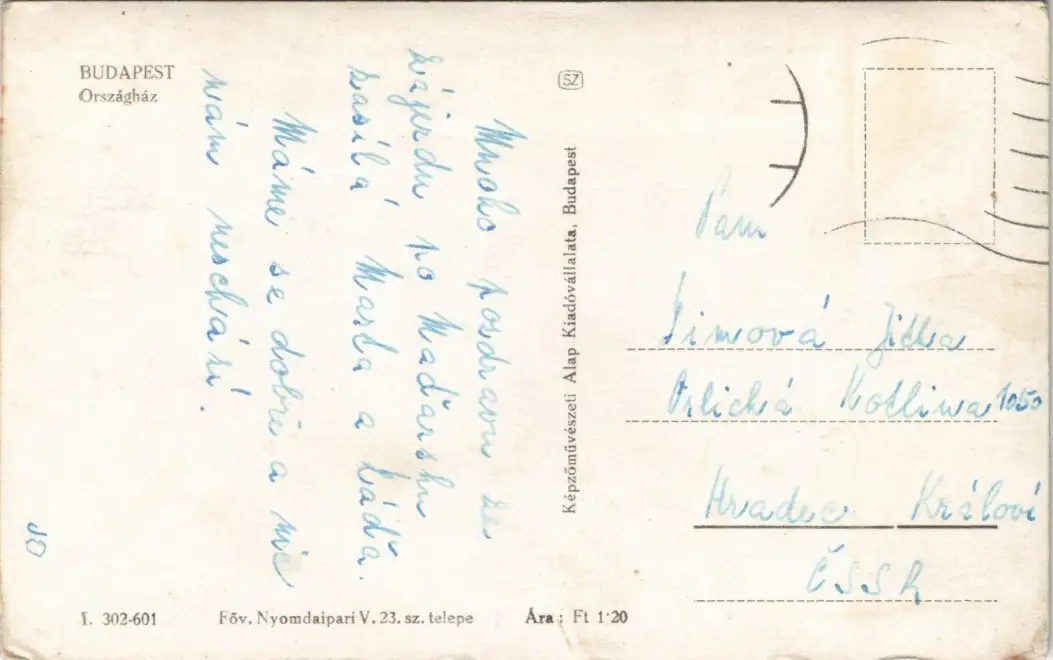 BUDAPEST
Országház
Mnoho pozdravů ze
zájezdu po Maďarsku
zasílá Marta a Láďa.
Máme se dobře a nic
nám neschází.
SZ
Képzőművészeti Alap Kiadóvállalata, Budapest
Jitka
Orlická Kotlina 1050
Hradec Králové
ČSSR
I. 302-601
Főv. Nyomdaipari V. 23. sz. telepe
Ára: Ft 1·20